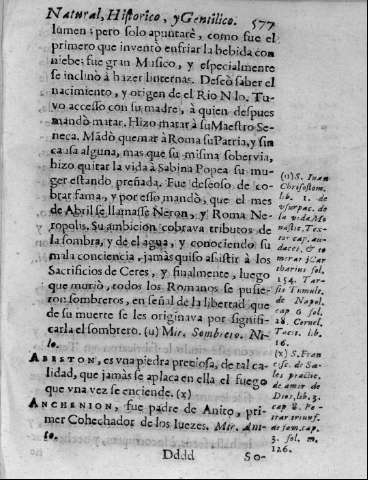 Natural, Historico, y Gentilico. 577
lumen; pero solo apuntarè, como fue el
primero que inventò enfriar la bebida con
niebe: fue gran Musico, y especialmente
se inclinò à hazer linternas. Deseò saber el
nacimiento, y origen de el Rio Nilo. Tu-
vo accesso con su madre, à quien despues
mandò matar. Hizo matar à su Maestro Se-
neca. Mãdò quemar à Roma su Patria, y sin
causa alguna, mas que su misma sobervia,
hizo quitar la vida à Sabina Popea su mu-
ger estando preñada. Fue deseoso de co-
brar fama, y por esso mandò, que el mes
de Abril se llamasse Neron, y Roma Ne-
ropolis. Su ambicion cobrava tributos de
la sombra, y de el agua, y conociendo su
mala conciencia, jamàs quiso assistir à los
Sacrificios de Ceres, y finalmente, luego
que murio, todos los Romanos se pusie-
ron sombreros, en señal de la libertad que
de su muerte se les originava por signifi-
carla el sombrero. (u) Mir. Sombrero. Ni-
lo.
ABESTON, es vna piedra preciosa, de tal ca-
lidad, que jamàs se aplaca en ella el fuego
que vna vez se enciende. (x)
ANCHENION, fue padre de Anito, pri-
mer Cohechador de los Iuezes. Mir. Ani-
to.
Dddd So-
(u) S. Iuan
Chrisostom.
lib. 1. de
vsurpac. de
la vida Mo
nastic. Tex-
tor cap. au-
daces, & te
merar
154. Tar-
sis Tumult.
de Napol.
cap. 6 fol.
28. Cornel.
Tacit. lib.
16.
(x) S. Fran
cisc. de Sa-
les practic.
de amor de
Dios, lib. 3.
cap 8. Pe-
trar triunf.
de fam. cap.
3. fol. m.
126.